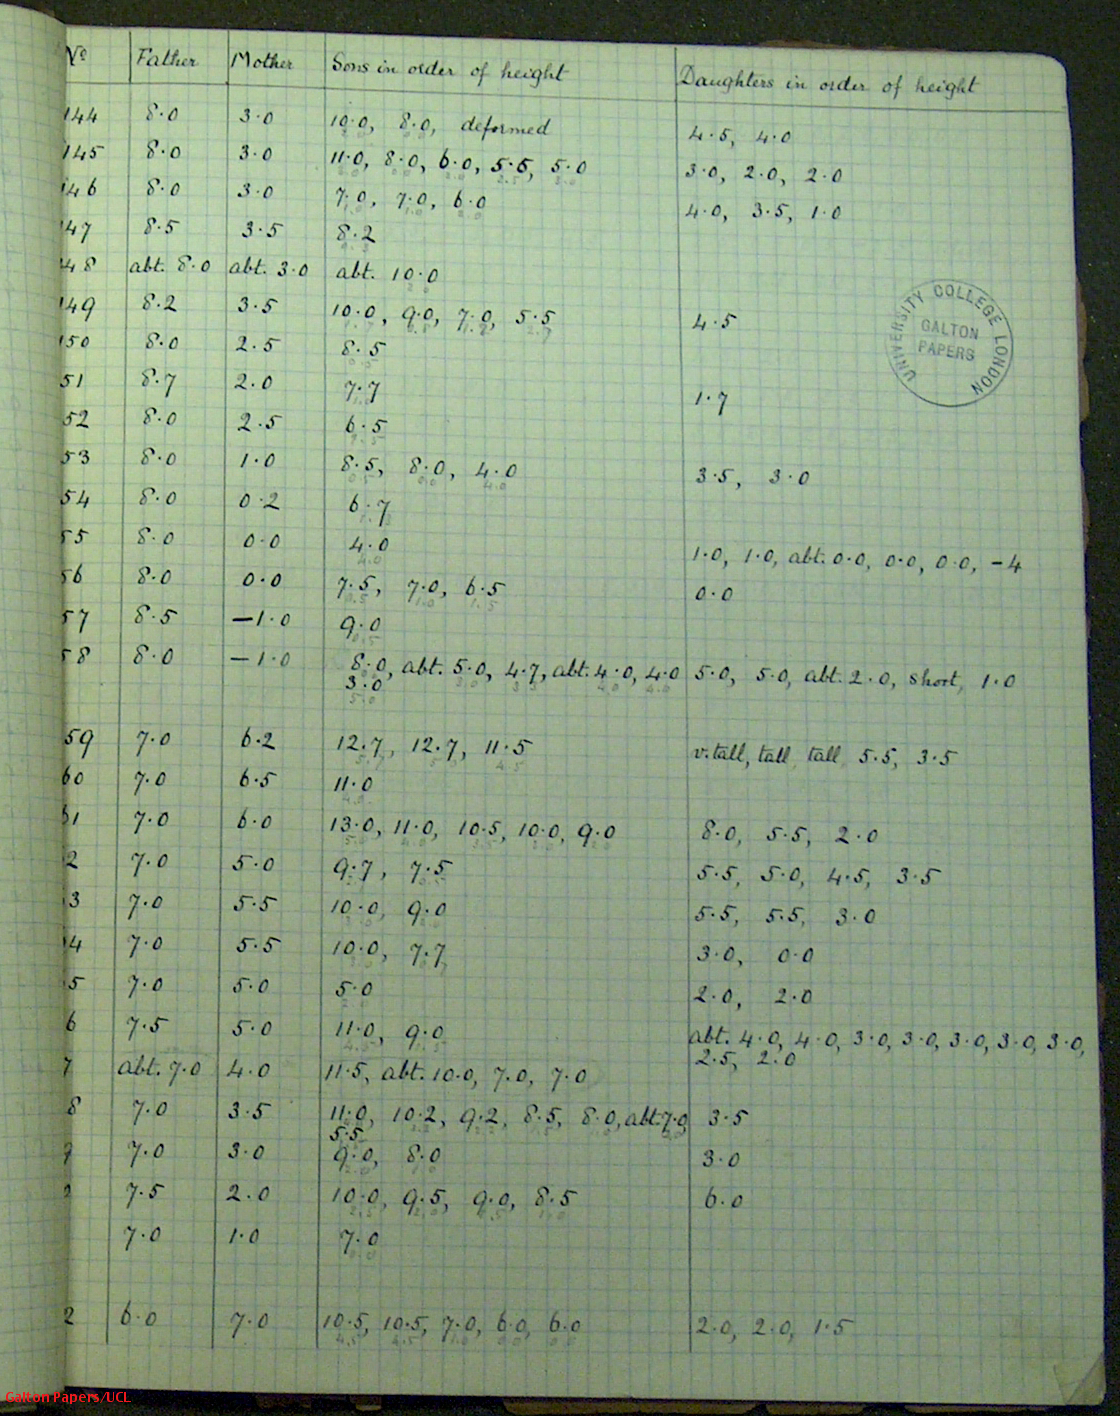 No Father Mother Sons in order of height Daughters in order of height
144 8.0 3.0 10.0, 8.0, deformed 4.5, 4.0
145 8.0 3.0 11.0, 8.0, 6.0, 5.5, 5.0 3.0, 2.0, 2.0
146 8.0 3.0 7.0, 7.0, 6.0 4.0, 3.5, 1.0
47 8.5 3.5 8.2
48 abt. 8.0 abt. 3.0 abt. 10.0
149 8.2 3.5 10.0, 9.0, 7.0, 5.5 4.5
50 8.0 2.5 8.5
51 8.7 2.0 7.7 1.7
52 8.0 2.5 6.5
53 8.0 1.0 8.5, 8.0, 4.0 3.5, 3.0
54 8.0 0.2 6.7
55 8.0 0.0 4.0 1.0, 1.0, abt. 0.0, 0.0, 0.0, -4
56 8.0 0.0 7.5, 7.0, 6.5 0.0
57 8.5 -1.0 9.0
58 8.0 -1.0 8.0, abt. 5.0, 4.7, abt. 4.0, 4.0 5.0, 5.0, abt. 2.0, short, 1.0
3.0
59 7.0 6.2 12.7, 12.7, 11.5 v. tall, tall, tall, 5.5, 3.5
60 7.0 6.5 11.0
61 7.0 6.0 13.0, 11.0, 10.5, 10.0, 9.0 8.0, 5.5, 2.0
2 7.0 5.0 9.7, 7.5 5.5, 5.0, 4.5, 3.5
3 7.0 5.5 10.0, 9.0 5.5, 5.5, 3.0
4 7.0 5.5 10.0, 7.7 3.0, 0.0
5 7.0 5.0 5.0 2.0, 2.0
6 7.5 5.0 11.0, 9.0 abt. 4.0, 4.0, 3.0, 3.0, 3.0, 3.0, 3.0,
2.5, 2.0
7 abt. 7.0 4.0 11.5, abt. 10.0, 7.0, 7.0
8 7.0 3.5 11.0, 10.2, 9.2, 8.5, 8.0, abt. 7.0 3.5
5.5
9 7.0 3.0 9.0, 8.0 3.0
7.5 2.0 10.0, 9.5, 9.0, 8.5 6.0
7.0 1.0 7.0
2 6.0 7.0 10.5, 10.5, 7.0, 6.0, 6.0 2.0, 2.0, 1.5
UNIVERSITY COLLEGE LONDON
GALTON
PAPERS
Galton Papers/UCL